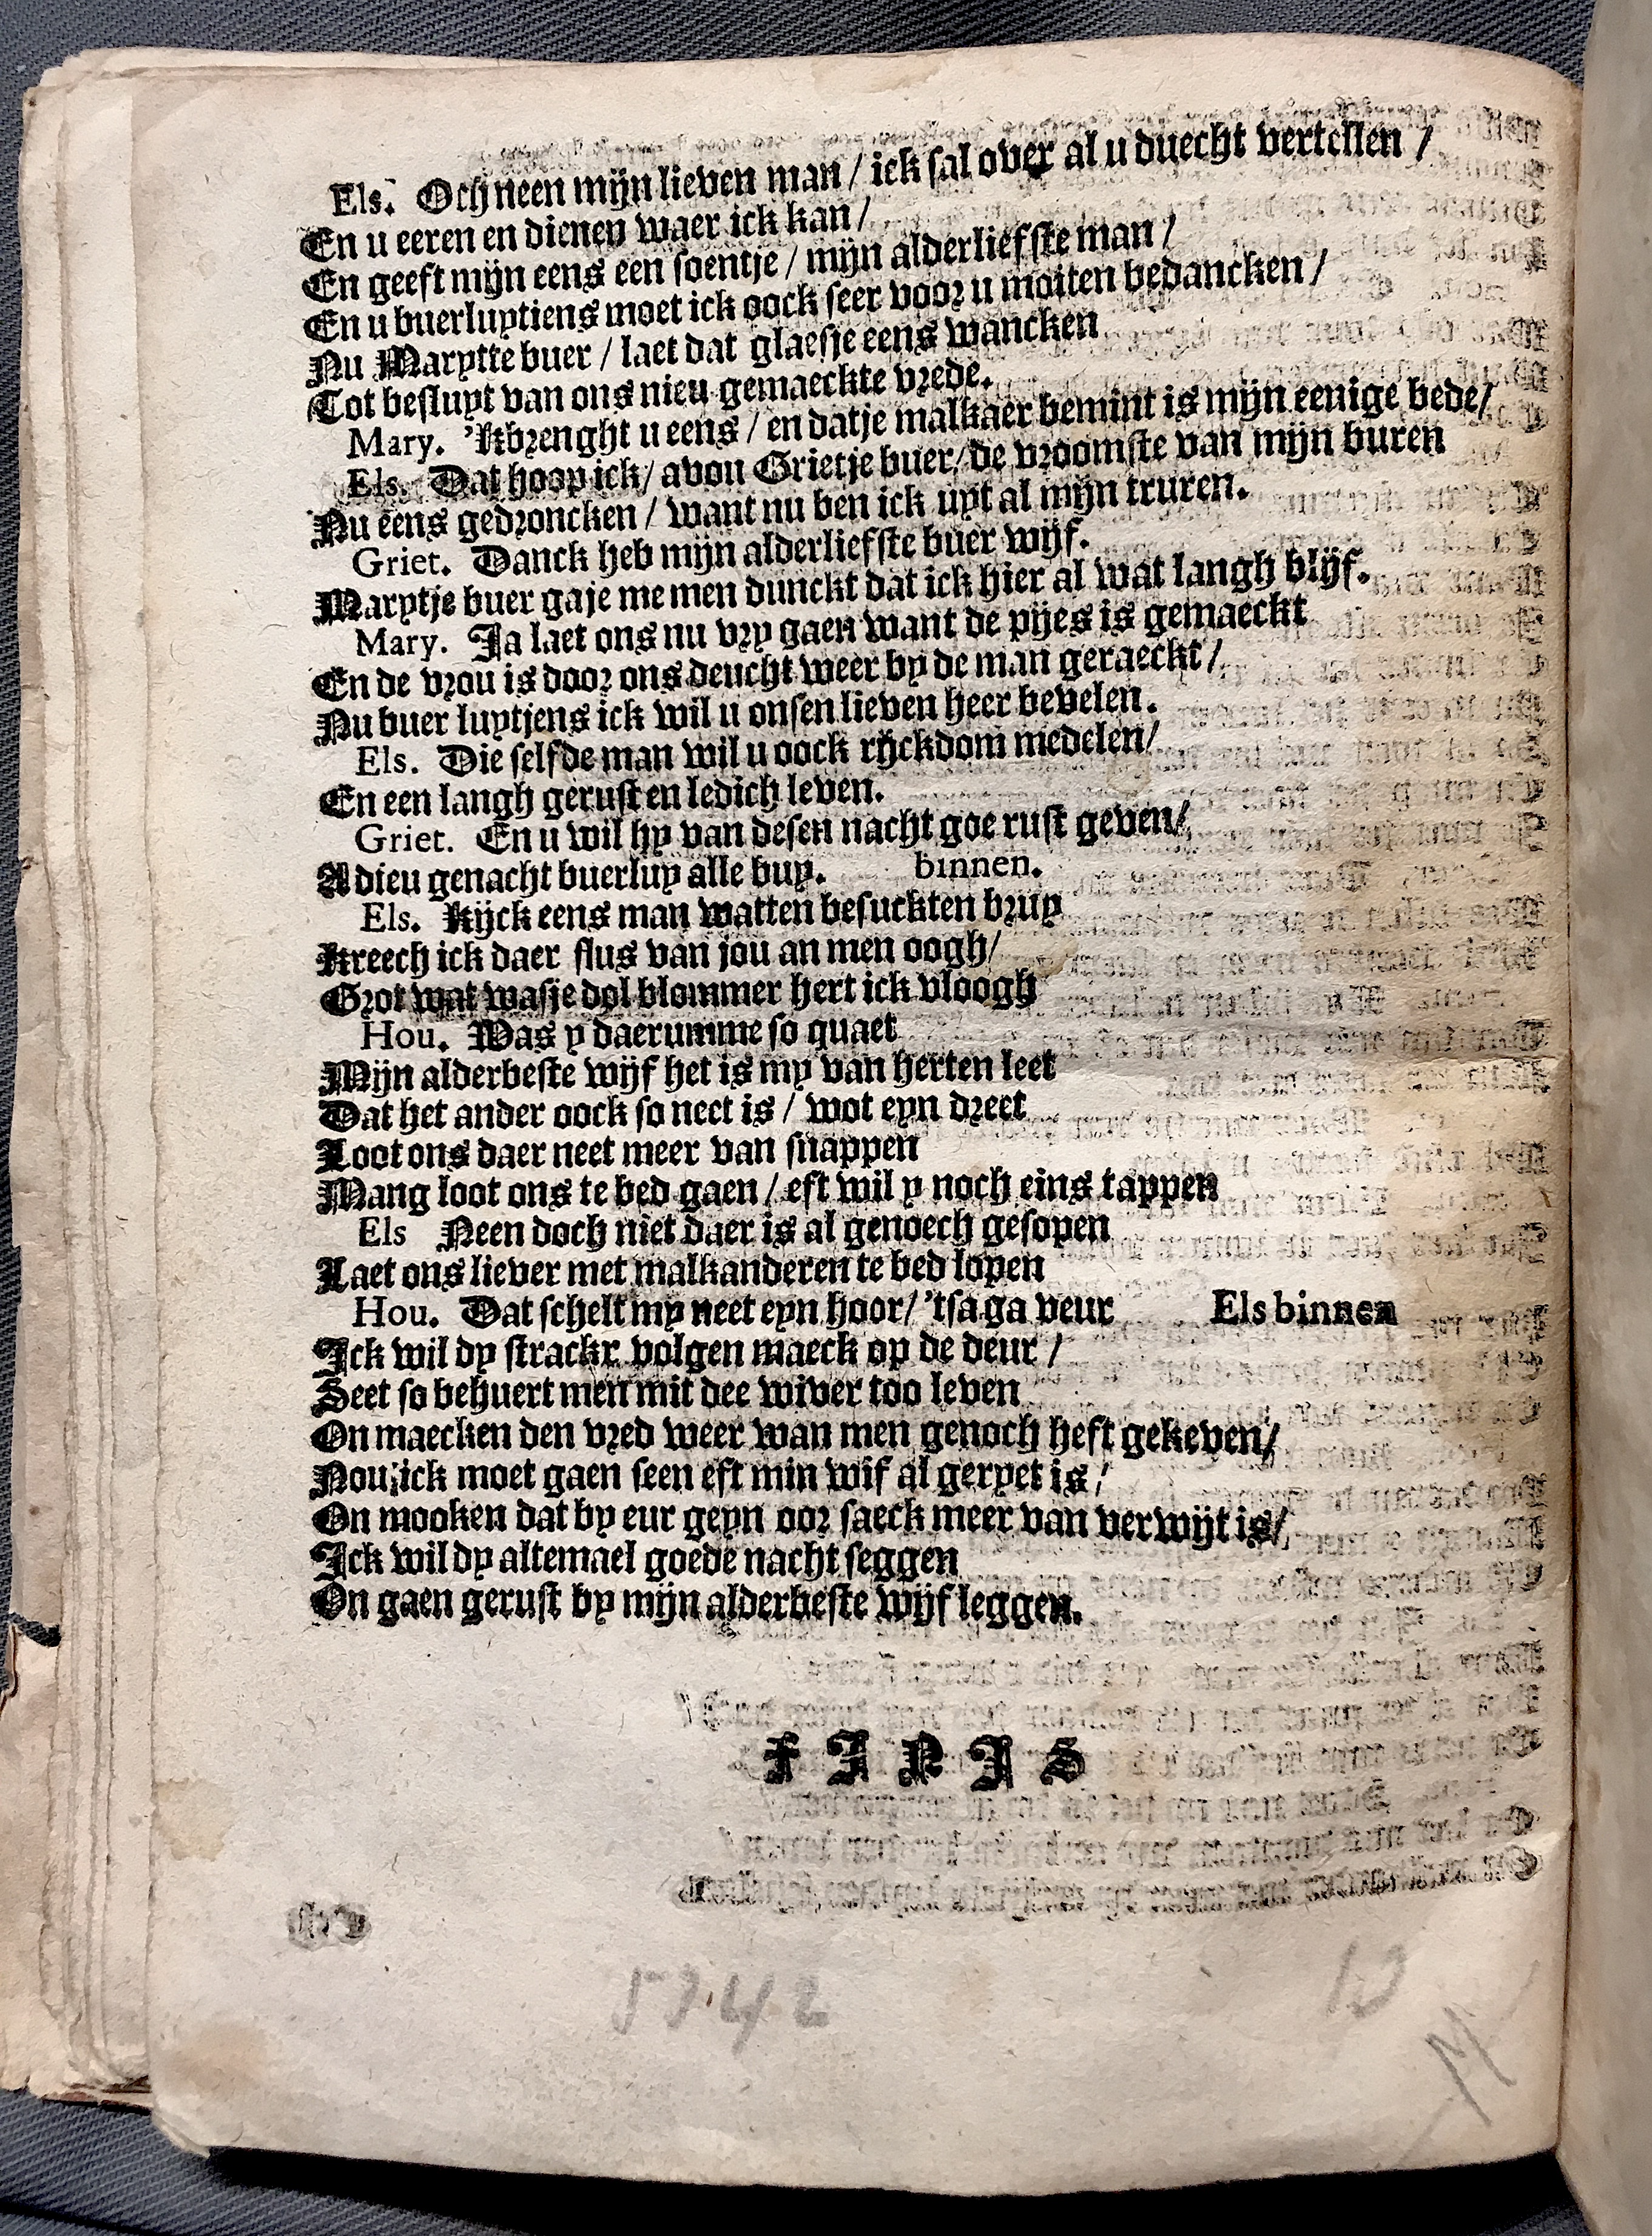 Els. Och neen mijn lieven man / ick sal over al u duecht vertellen /
En u eeren en dienen waer ick kan /
En geeft mijn eens een soentje / mijn alderliefste man /
En u buerluytiens moet ick oock seer voor u moiten bedancken /
Nu Marytte buer / laet dat glaesje eens wancken
Tot besluyt van ons nieu gemaeckte vrede.
Mary. 'Kbrenght u eens / en datje malkaer bemint is mijn eenige bede /
Els. Dat hoop ick / avou Grietje buer / de vroomste van mijn buren
Nu eens gedroncken / want nu ben ick uyt al mijn truren.
Griet. Danck heb mijn alderliefste buer wijf.
Marytje buer gaje me men dunckt dat ick hier al wat langh blijf.
Mary. Ja laet ons nu vry gaen want de pijes is gemaeckt
En de vrou is door ons deucht weer by de man geraeckt /
Nu buer luytjens ick wil u onsen lieven heer bevelen.
Els. Die selfde man wil u oock rijckdom medelen /
En een langh gerust en ledich leven.
Griet. En u wil hy van desen nacht goe rust geven /
Adieu genacht buerluy alle buy. binnen.
Els. Kijck eens man watten besuckten bruy
Kreech ick daer flus van jou an men oogh /
Grot wat wasje dol blommer hert ick vloogh
Hou. Was y daerumme so quaet
Mijn alderbeste wijf het is my van herten leet
Dat het ander oock so neet is / wot eyn dreet
Loot ons daer neet meer van snappen
Mang loot ons te bed gaen / eft wil y noch eins tappen
Els Neen doch niet daer is al genoech gesopen
Laet ons liever met malkanderen te bed lopen
Hou. Dat schelt my neet eyn hoor / 'tsa ga veur Els binnen
Ick wil dy strackx volgen maeck op de deur /
Seet so behuert men mit dee wiver too leven
On maecken den vred weer wan men genoch heft gekeven /
Nou ick moet gaen seen eft min wif al geryet is /
On mooken dat by eur geyn oor saeck meer van verwijt is /
Ick wil dy altemael goede nacht seggen
On gaen gerust by mijn alderbeste wijf leggen.
FINIS
5742
10